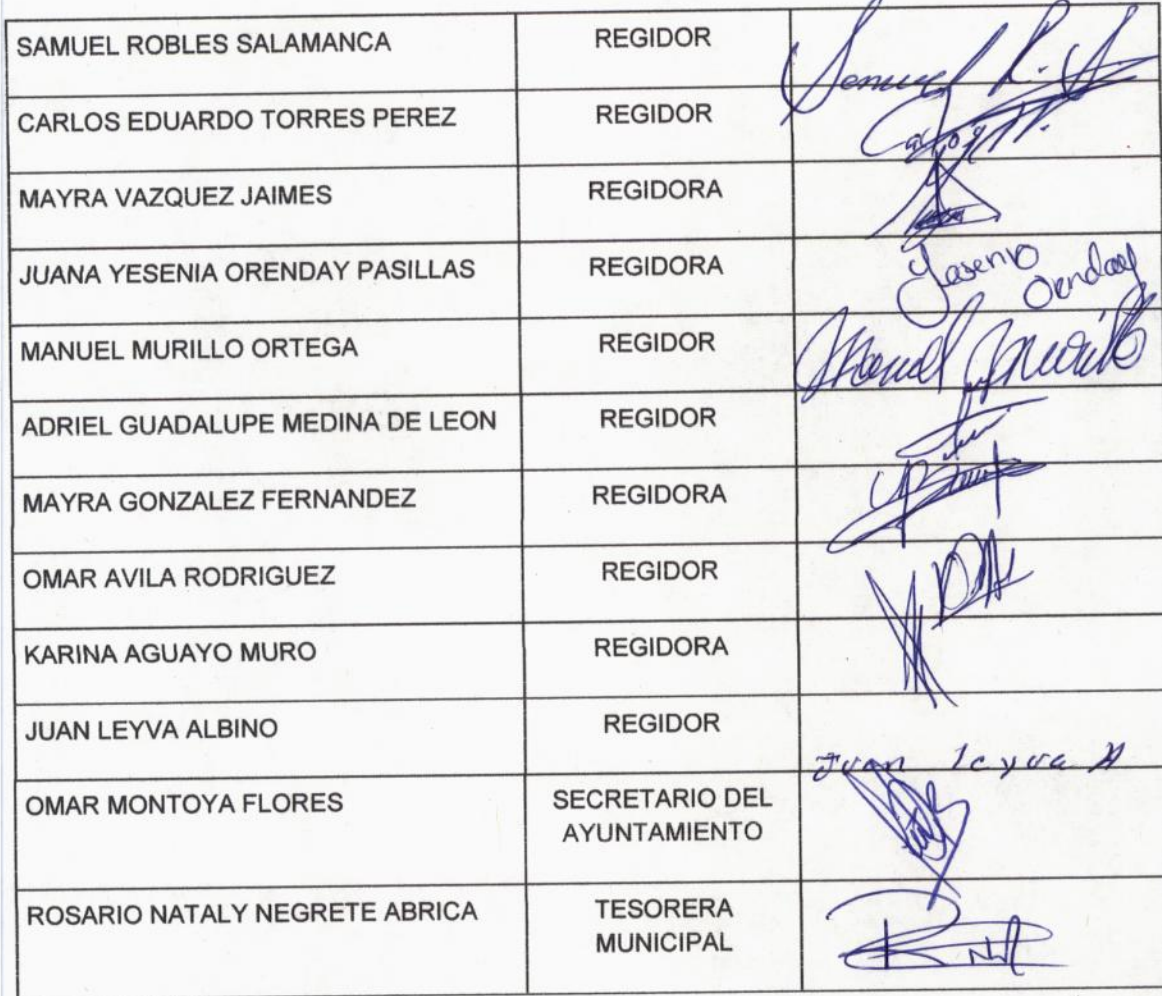 SAMUEL ROBLES SALAMANCA REGIDOR Samuel R. S.
CARLOS EDUARDO TORRES PEREZ REGIDOR Carlos
MAYRA VAZQUEZ JAIMES REGIDORA
JUANA YESENIA ORENDAY PASILLAS REGIDORA Yasenia Orenday
MANUEL MURILLO ORTEGA REGIDOR Manuel Murillo
ADRIEL GUADALUPE MEDINA DE LEON REGIDOR
MAYRA GONZALEZ FERNANDEZ REGIDORA
OMAR AVILA RODRIGUEZ REGIDOR
KARINA AGUAYO MURO REGIDORA
JUAN LEYVA ALBINO REGIDOR Juan Leyva A
OMAR MONTOYA FLORES SECRETARIO DEL
AYUNTAMIENTO
ROSARIO NATALY NEGRETE ABRICA TESORERA
MUNICIPAL